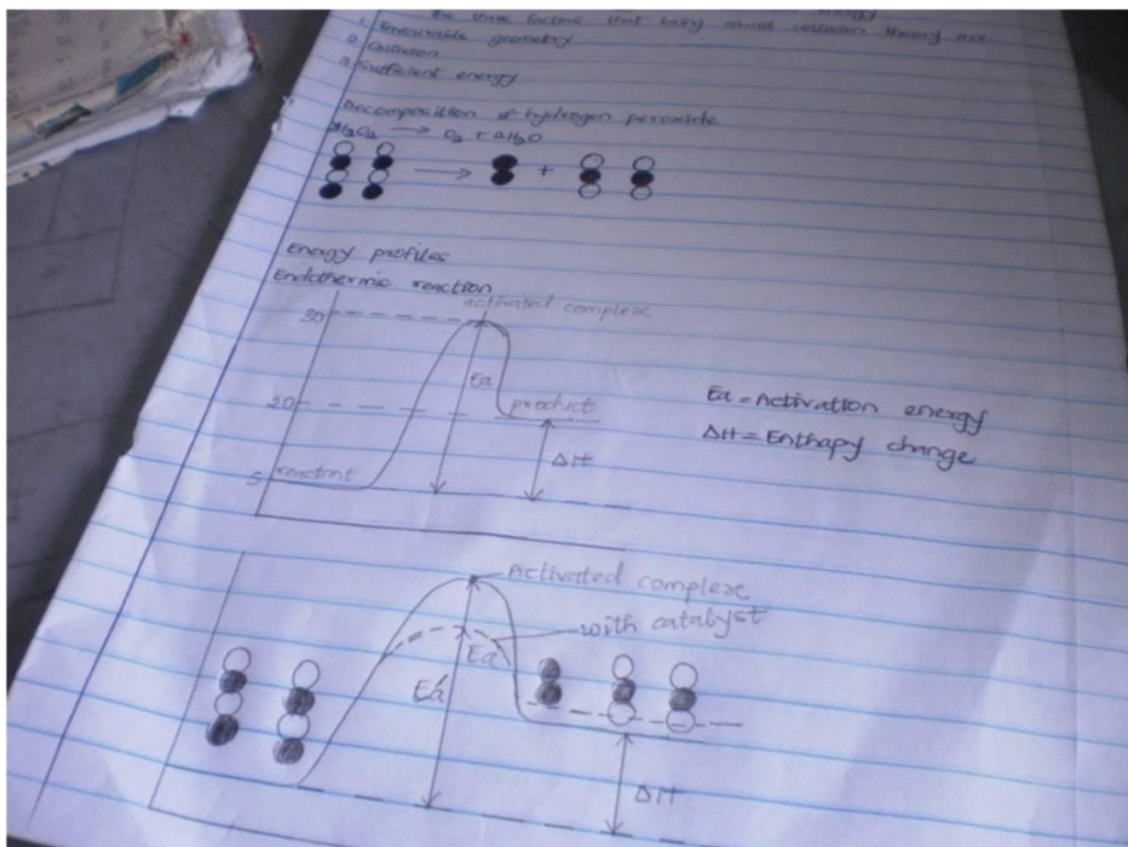 the three factors that bring about collision theory are
1. Favourable geometry
2. Collision
3. Sufficient energy
Decomposition of hydrogen peroxide
2H₂O₂ → O₂ + 2H₂O
→ +
Energy profiles
Endothermic reaction
activated complexe
30
Ea
20
product
Ea = Activation energy
ΔH = Enthapy change
ΔH
5
reactant
Activated complexe
with catalyst
Ea
Eá
ΔH